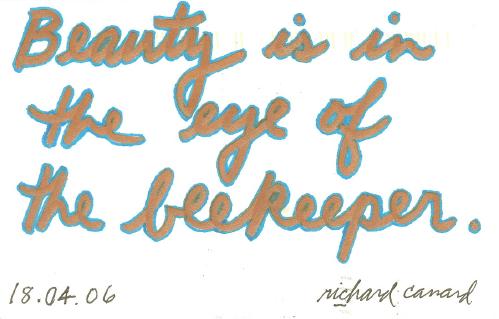 Beauty is in
the eye of
the beekeeper.
18.04.06 richard canard